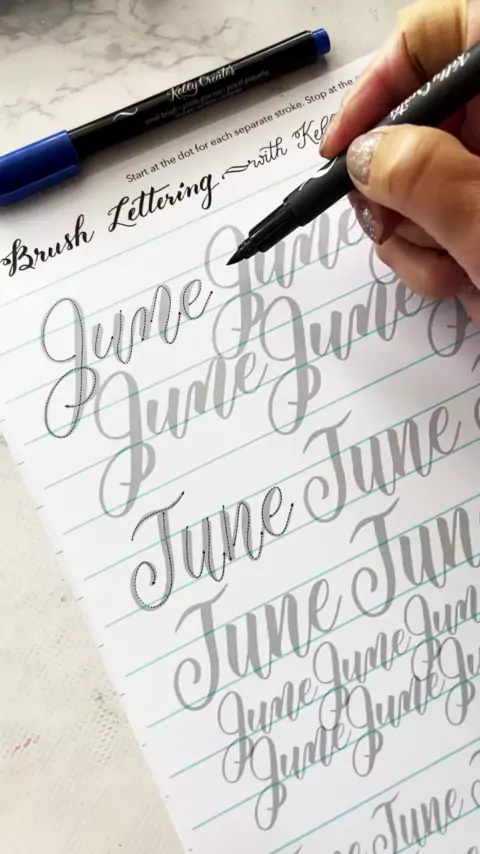 Kelly Creates
small brush
Start at the dot for each separate stroke. Stop at the
Brush Lettering with Kelly
Kelly Creates
June June
June June
June June
June June
June June June
June June June
June